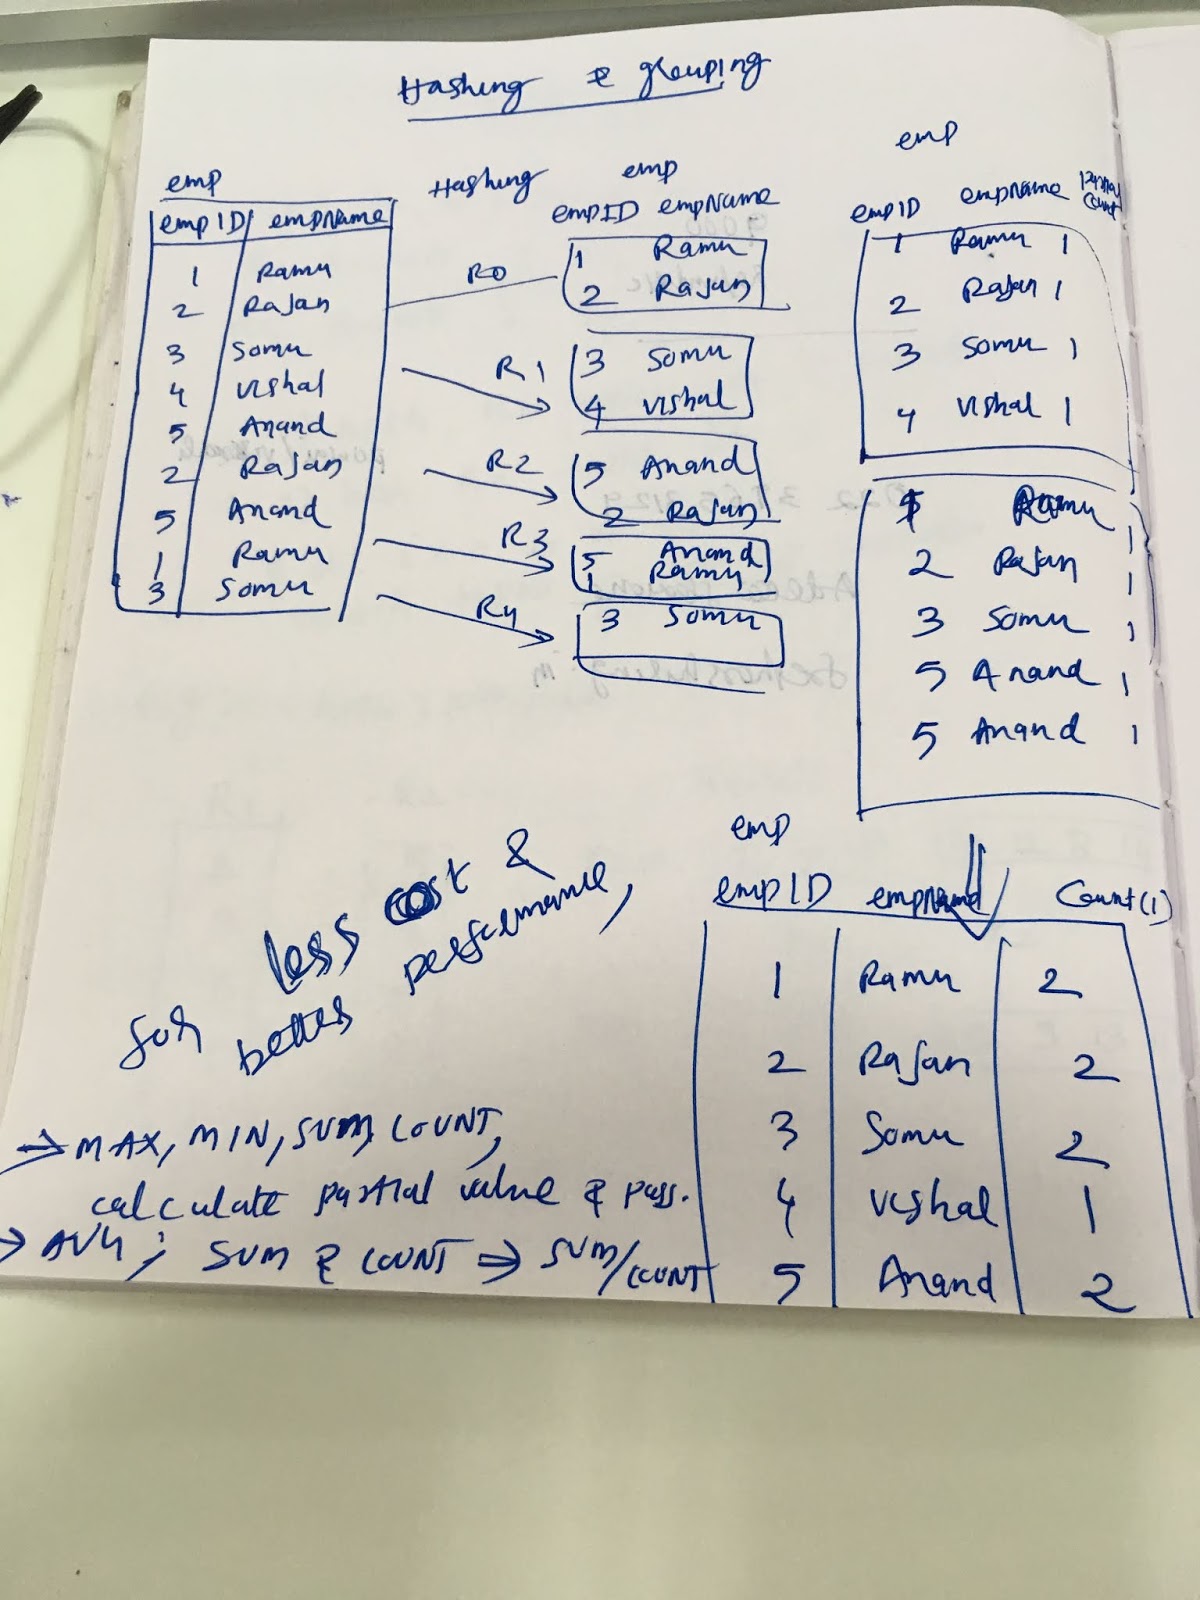 Hashing & grouping
emp
empID empName
1 Ramu
2 Rajan
3 Somu
4 Vishal
5 Anand
2 Rajan
5 Anand
1 Ramu
3 Somu
Hashing
R0
R1
R2
R3
R4
emp
empID empName
1 Ramu
2 Rajan
3 Somu
4 Vishal
5 Anand
2 Rajan
5 Anand
1 Ramu
3 Somu
emp
empID empName Partial Count
1 Ramu 1
2 Rajan 1
3 Somu 1
4 Vishal 1
1 Ramu 1
2 Rajan 1
3 Somu 1
5 Anand 1
5 Anand 1
emp
empID empName Count(1)
1 Ramu 2
2 Rajan 2
3 Somu 2
4 Vishal 1
5 Anand 2
for less cost &
better performance,
→ MAX, MIN, SUM, COUNT,
calculate partial value & pass.
→ AVG; SUM & COUNT ⇒ SUM/COUNT